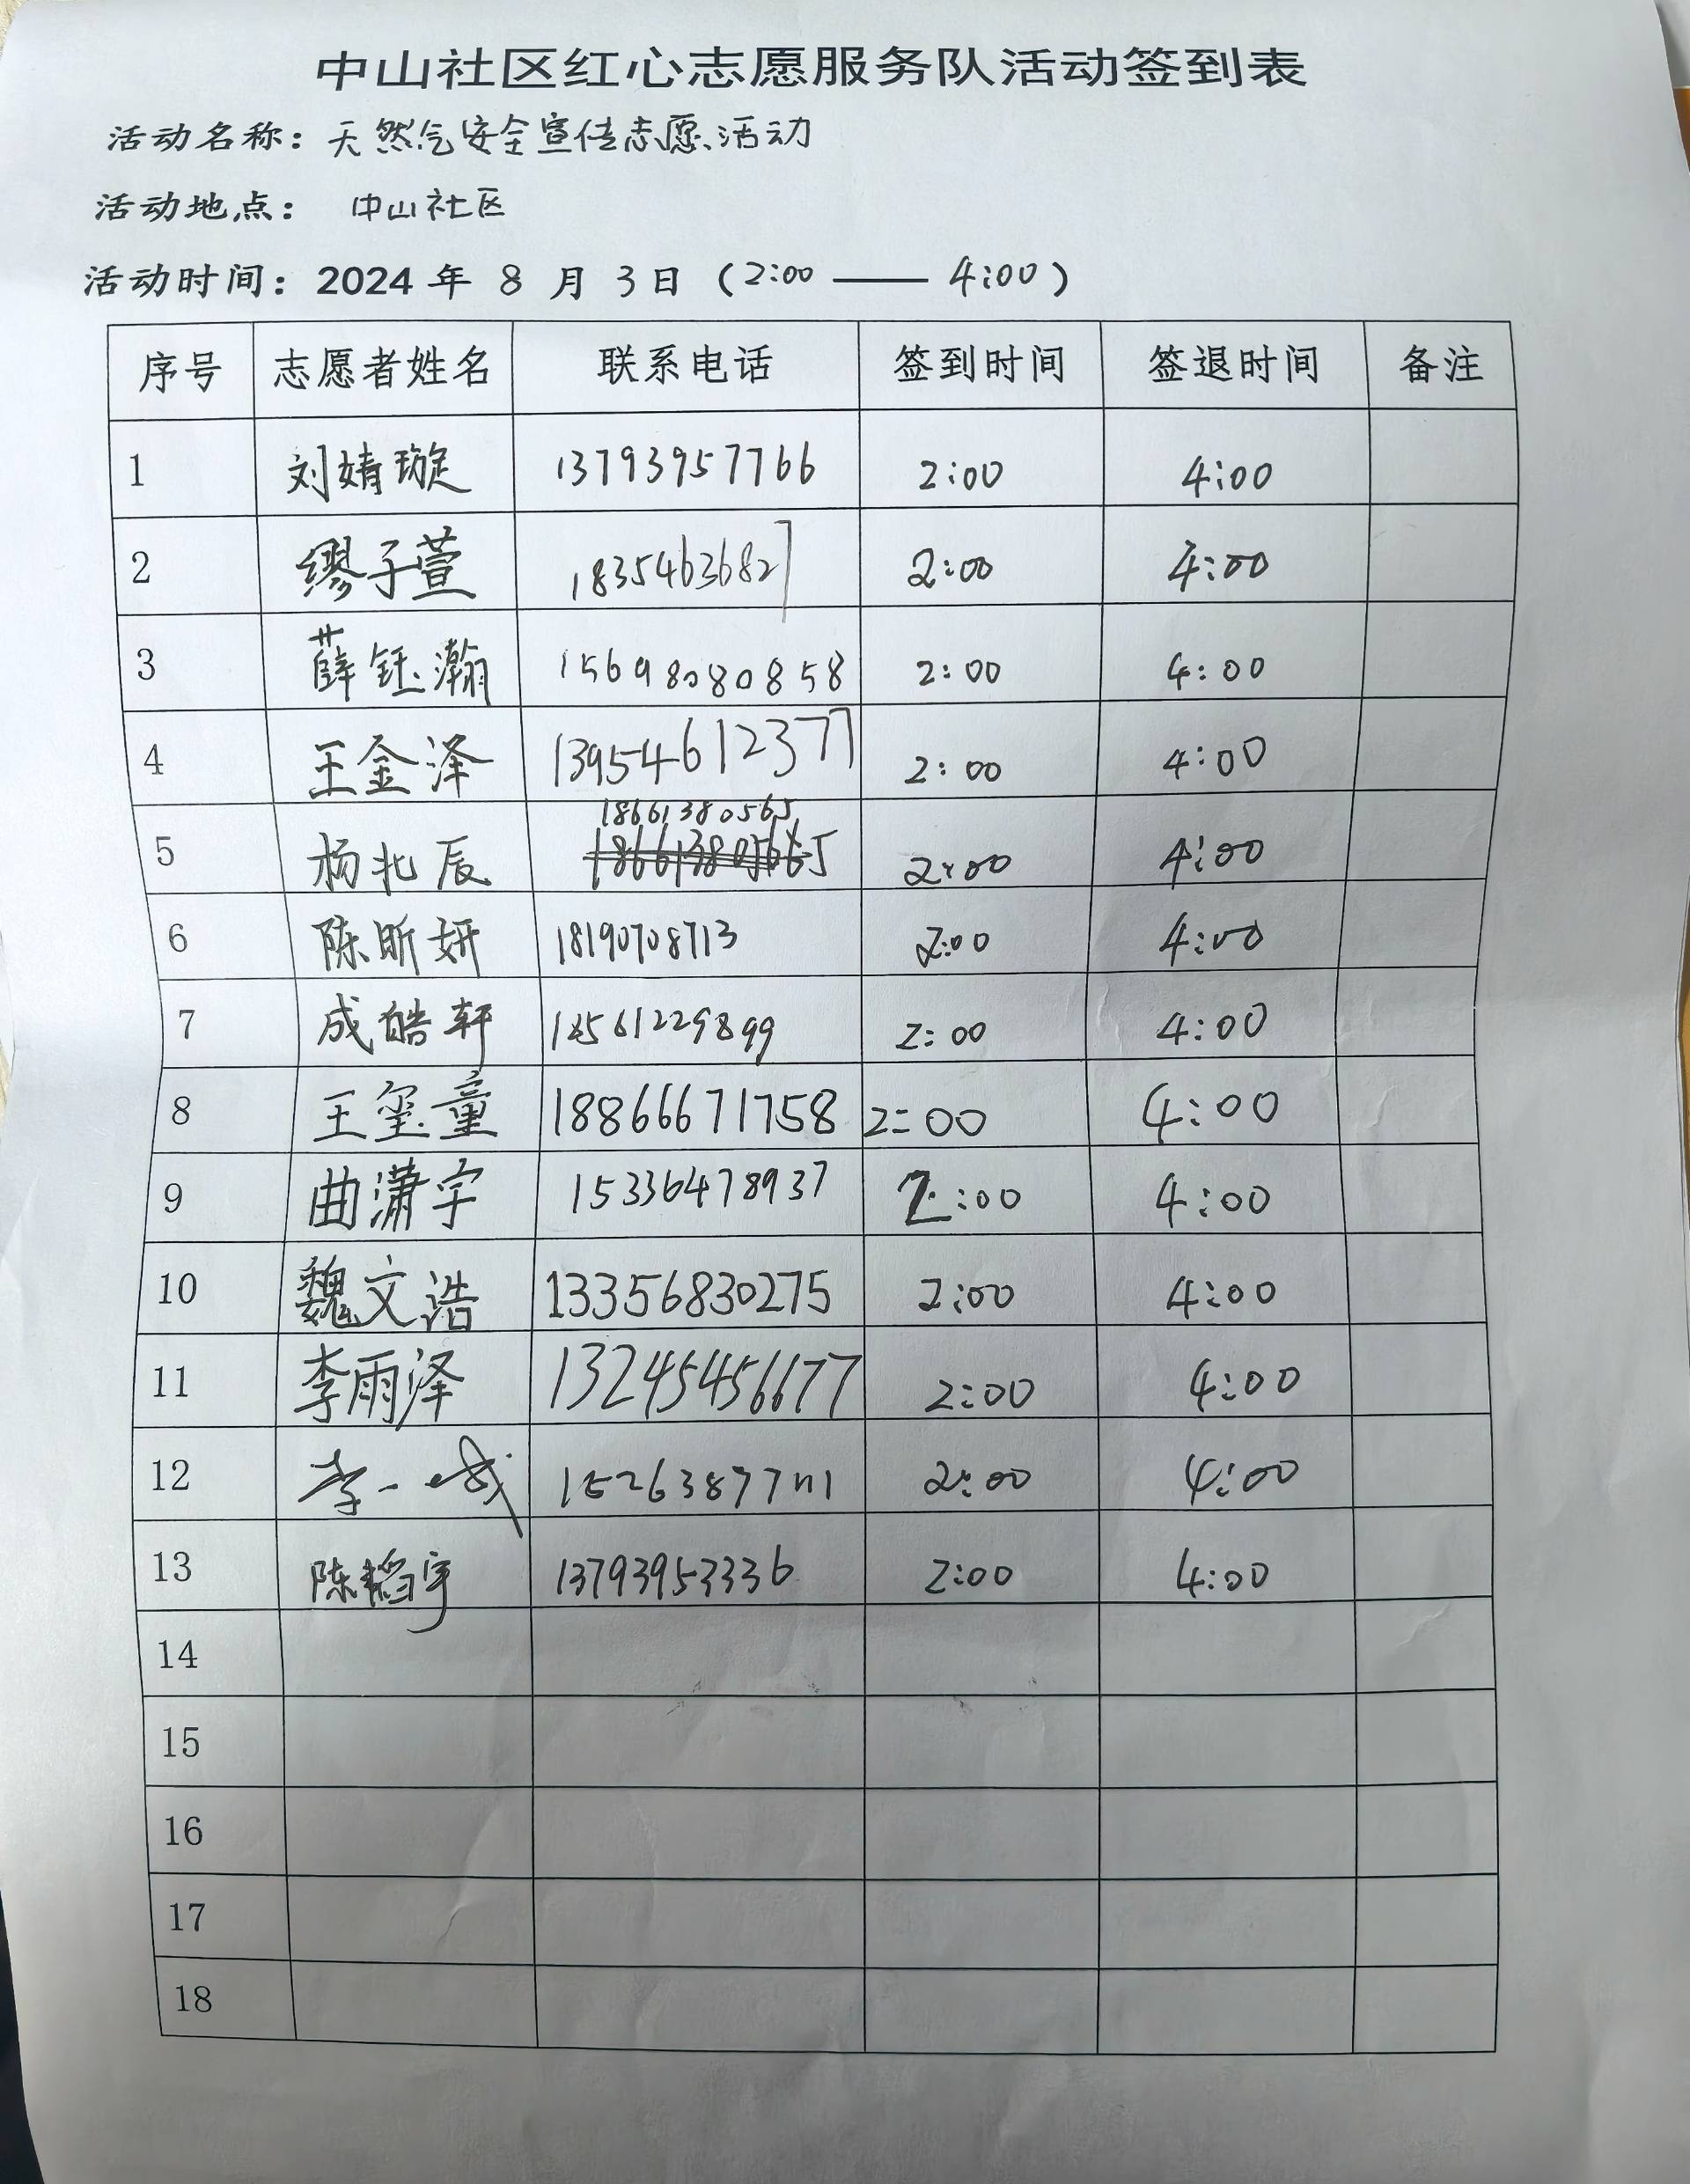 中山社区红心志愿服务队活动签到表
活动名称：天然气安全宣传志愿活动
活动地点： 中山社区
活动时间：2024 年 8 月 3 日（2:00 —— 4:00）
序号 志愿者姓名 联系电话 签到时间 签退时间 备注
1 刘婧璇 13793957766 2:00 4:00
2 缪子萱 18354636827 2:00 4:00
3 薛钰瀚 15698080858 2:00 4:00
4 王金泽 13954612377 2:00 4:00
5 杨北辰 18661380565 2:00 4:00
6 陈昕妍 18190708713 2:00 4:00
7 成皓轩 18561229899 2:00 4:00
8 王玺童 18866671758 2:00 4:00
9 曲潇宇 15336478937 2:00 4:00
10 魏文浩 13356830275 2:00 4:00
11 李雨泽 13245456677 2:00 4:00
12 李一 2:00 4:00
13 陈韬宇 13793953336 2:00 4:00
14
15
16
17
18